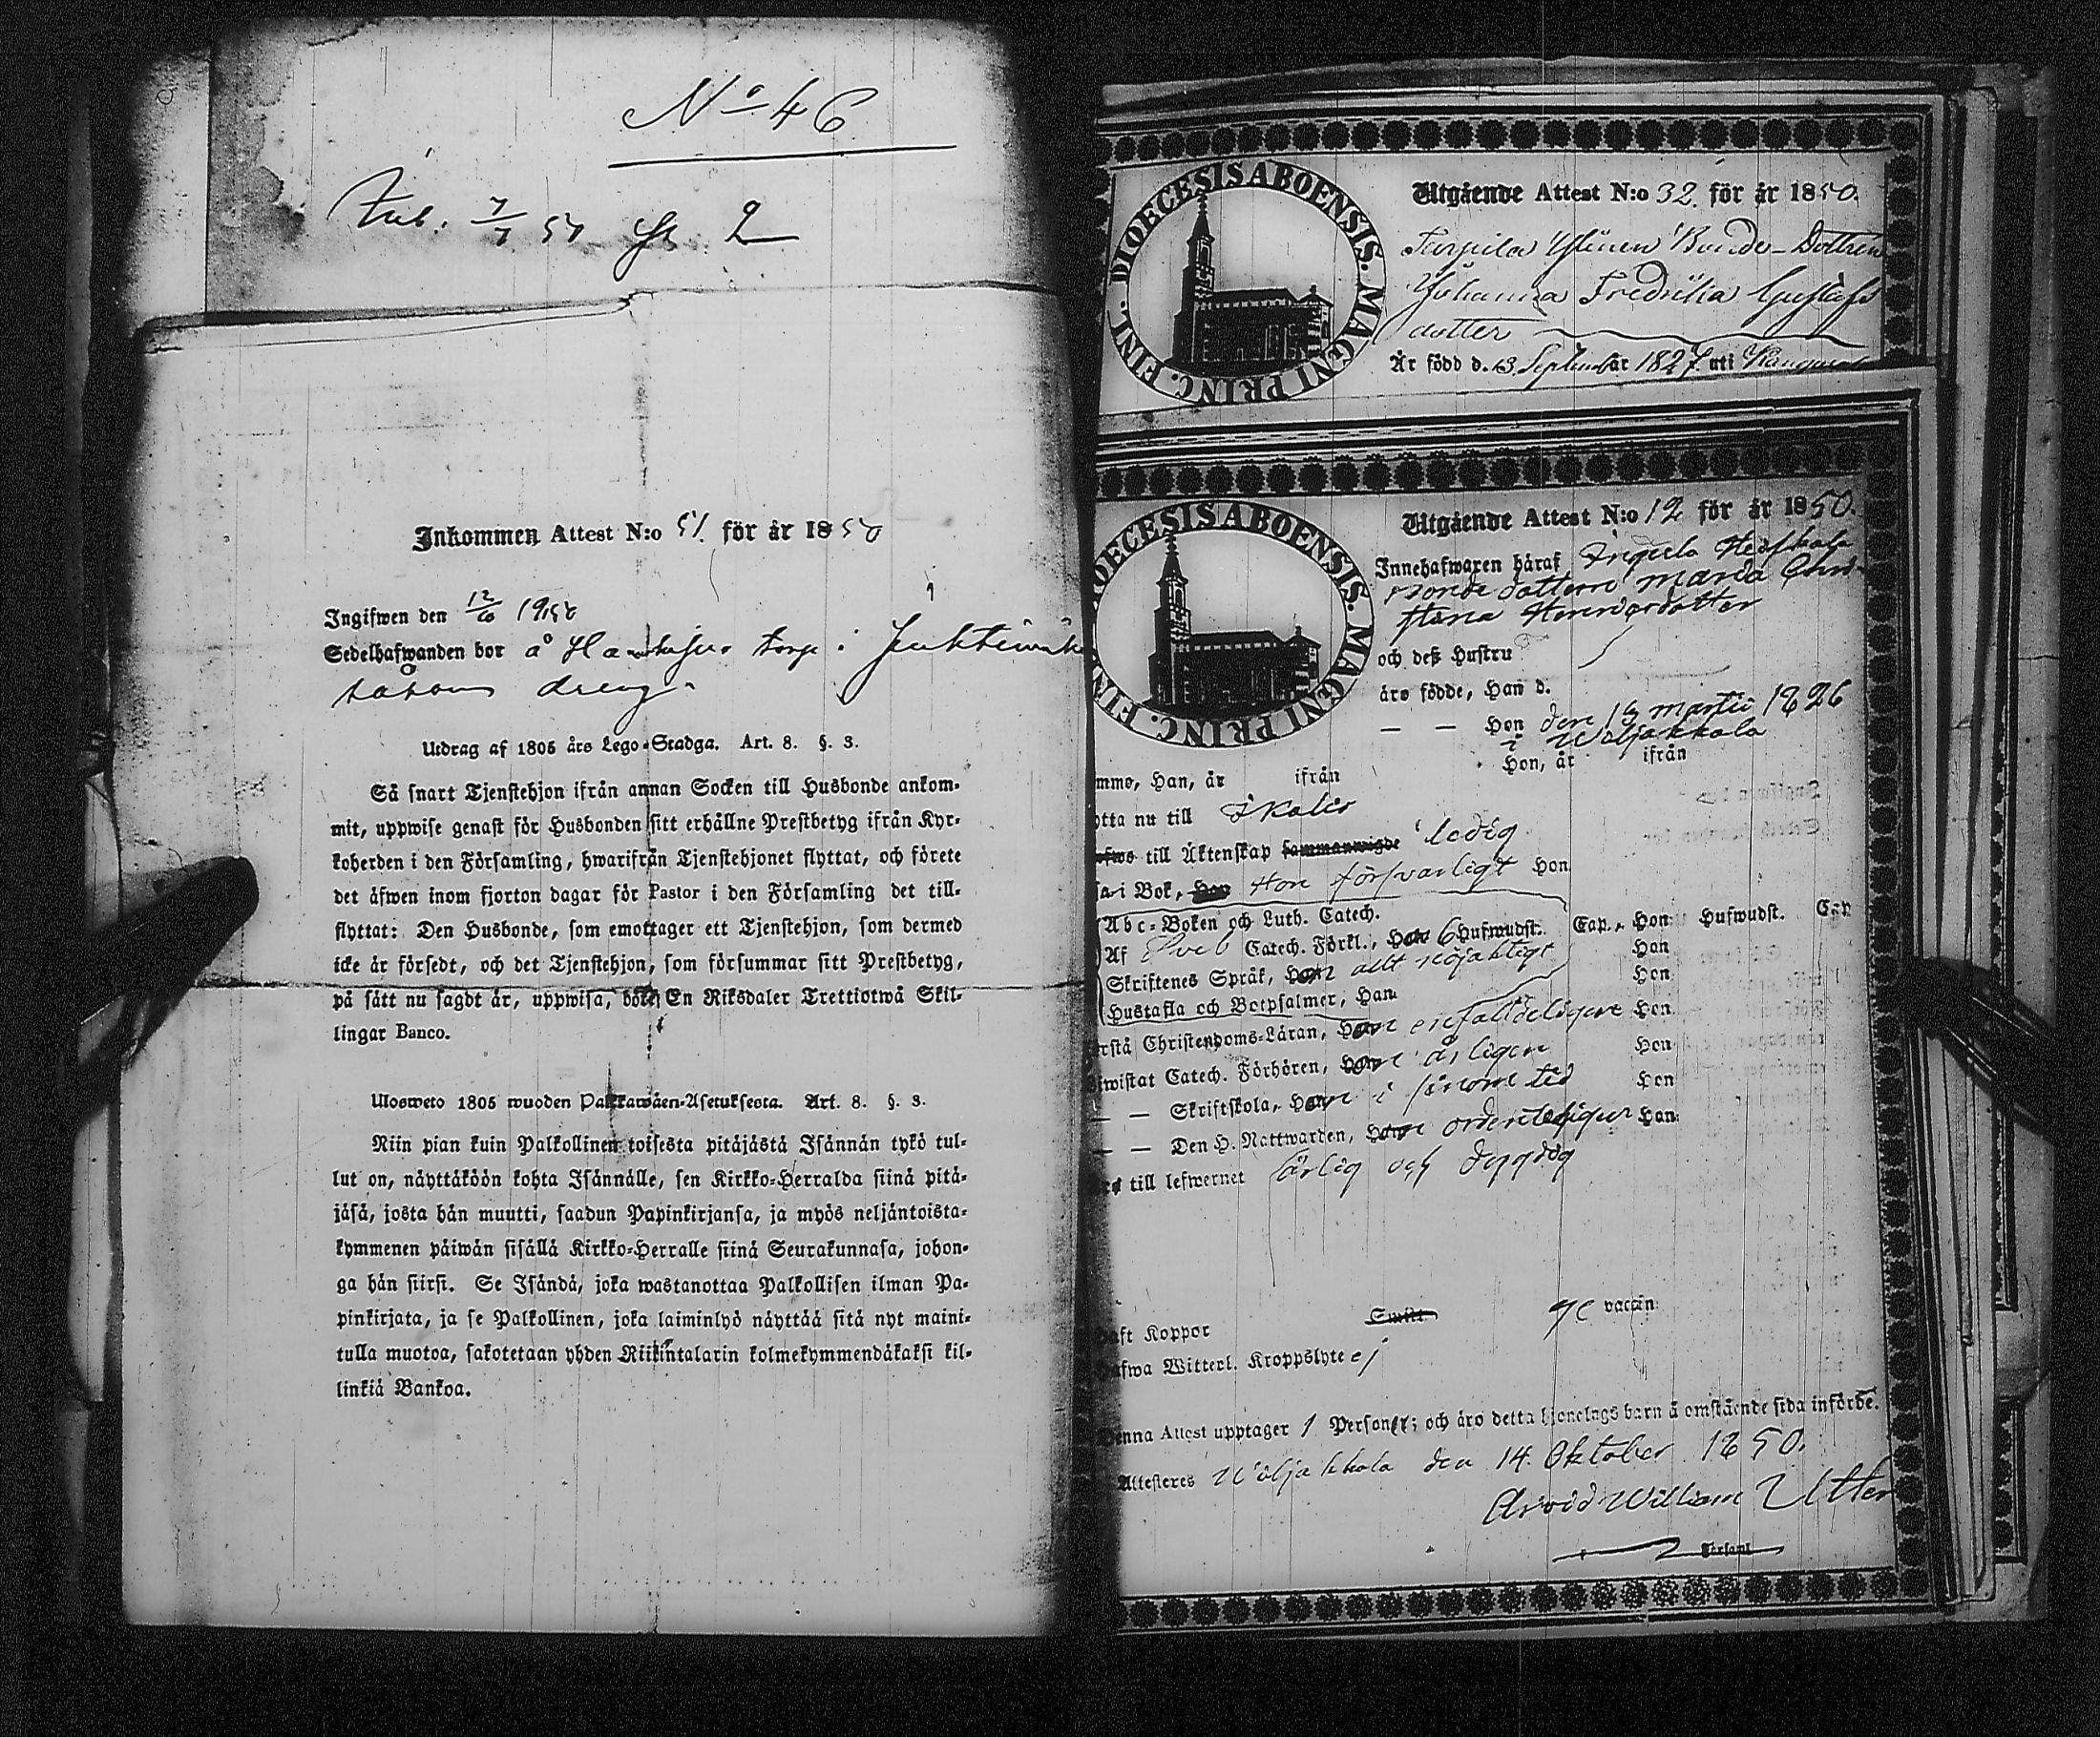 No 46
Inkommen Attest N:o 51. för år 1850
Ingifwen den 12/6 1850
Sedelhafwanden bor å torp i
dreng
Utdrag af 1805 års Lego-Stadga. Art. 8. §. 3.
Så snart Tjenstehjon ifrån annan Socken till Husbonde ankom-
mit, uppwise genast för Husbonden sitt erhållne Prestbetyg ifrån Kyr-
koherden i den Församling, hwarifrån Tjenstehjonet flyttat, och förete
det äfwen inom fjorton dagar för Pastor i den Församling det till-
flyttat: Den Husbonde, som emottager ett Tjenstehjon, som dermed
icke är försedt, och det Tjenstehjon, som försummar sitt Prestbetyg,
på sätt nu sagdt är, uppwisa, böte En Riksdaler Trettiotwå Skil-
lingar Banco.
Ulosweto 1805 wuoden Palkkawäen-Asetuksesta. Art. 8. §. 3.
Niin pian kuin Palkollinen toisesta pitäjästä Isännän tykö tul-
lut on, näyttäköön kohta Isännälle, sen Kirkko-Herralda siinä pitä-
jäsä, josta hän muutti, saadun Papinkirjansa, ja myös neljäntoista-
kymmenen päiwän sisällä Kirkko-Herralle siinä Seurakunnasa, johon-
ga hän siirsi. Se Isändä, joka wastanottaa Palkollisen ilman Pa-
pinkirjata, ja se Palkollinen, joka laiminlyö näyttää sitä nyt maini-
tulla muotoa, sakotetaan yhden Riikintalarin kolmekymmendäkaksi kil-
linkiä Bankoa.
DIOECESIS ABOENSIS. MAGNI PRINC. FINL.
Utgående Attest N:o 32. för år 1850.
Bonde-Dottren
Johanna Fredrika Gustafs
dotter
Är född d. 13. September 1827. uti
OECESIS ABOENSIS. MAGNI PRINC. FIN
Utgående Attest N:o 12 för år 1850.
Innehafwaren häraf
Bonde dottern Maria Chri-
stina Henricsdotter
och deß Hustru
äro födde, Han d.
— — Hon den 13 martii 1826
i Wiljakkala
mmo, Han, år ifrån Hon, år ifrån
ytta nu till Ikalis
till Äktenskap sammanwigde ledig
sa i Bok, Han Hon försvarligt Hon
Abc-Boken och Luth. Catech.
Af Sveb Catech. Förkl., Hon 6 Hufwudst. Cap., Hon Hufwudst. Cap
Skriftenes Språk, Hon allt nöjaktigt Hon
Hustafla och Botpsalmer, Han Hon
rstå Christendoms-Läran, Hon enfaldeligen Hon
iwistat Catech. Förhören, Hon årligen Hon
— — Skriftskola, Hon i sinom tid Hon
— — Den H. Nattwarden, Hon ordenteligen Han
till lefwernet ärlig och dygdig
aft Koppor vaccin
afwa Witterl. Kroppslyte ej
enna Attest upptager 1 Personer; och äro detta hjonelags barn å omstående sida införde.
Attesteres Wiljakkala den 14. Oktober 1850.
Arvid William Utter
Församl